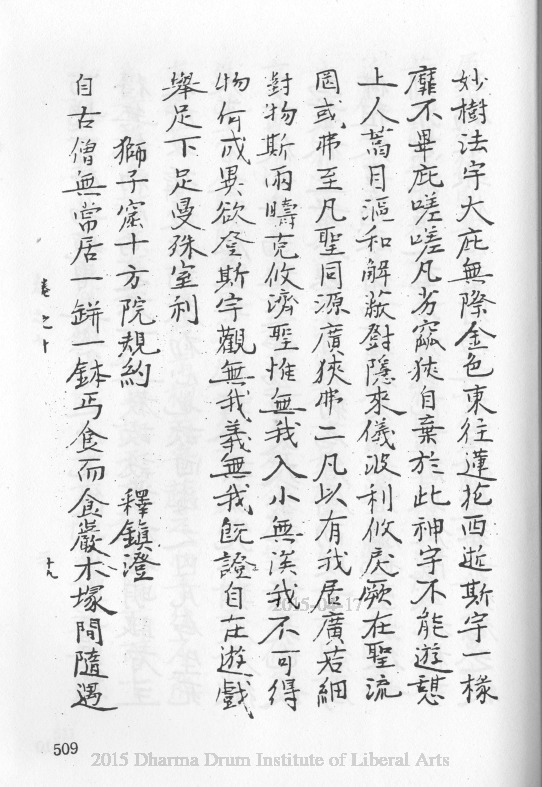 妙樹法宇大庇無際金色東徃蓮花西逝斯宇一椽
靡不畢庇嗟嗟凡劣窳狹自棄於此神宇不能遊憩
上人蒿目漚和解蔽對隱來儀波利攸戾厥在聖流
罔或弗至凡聖同源廣狹弗二凡以有我居廣若細
對物斯兩疇克攸濟聖惟無我入小無涘我不可得
物何成異欲登斯宇觀無我義無我旣證自在遊戲
舉足下足曼殊室利
獅子窟十方院規約 釋鎮澄
自古僧無常居一缾一鉢丐食而食巖木塚間隨遇
卷之十 十九
2015-05-17
509
2015 Dharma Drum Institute of Liberal Arts